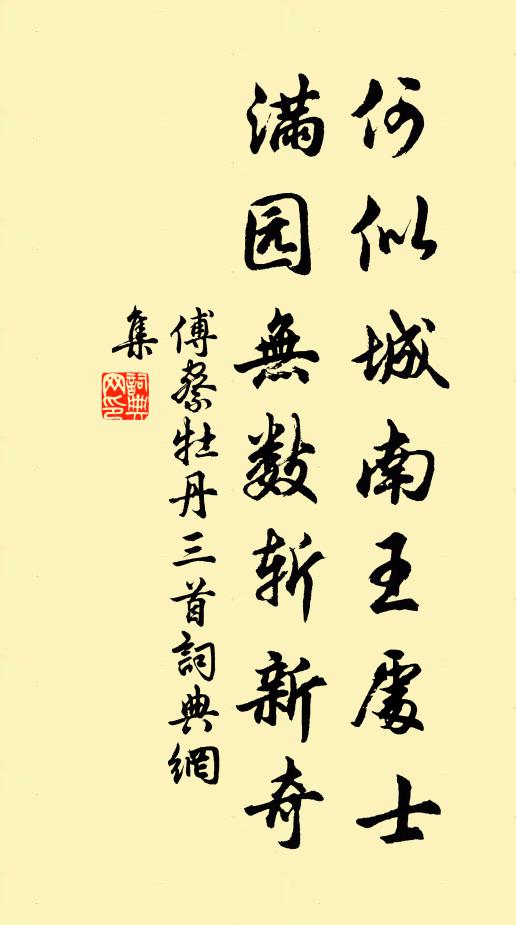 何似城南王處士
满园無数斬新奇
傅察牡丹三首詞典網
集
詞典
网印